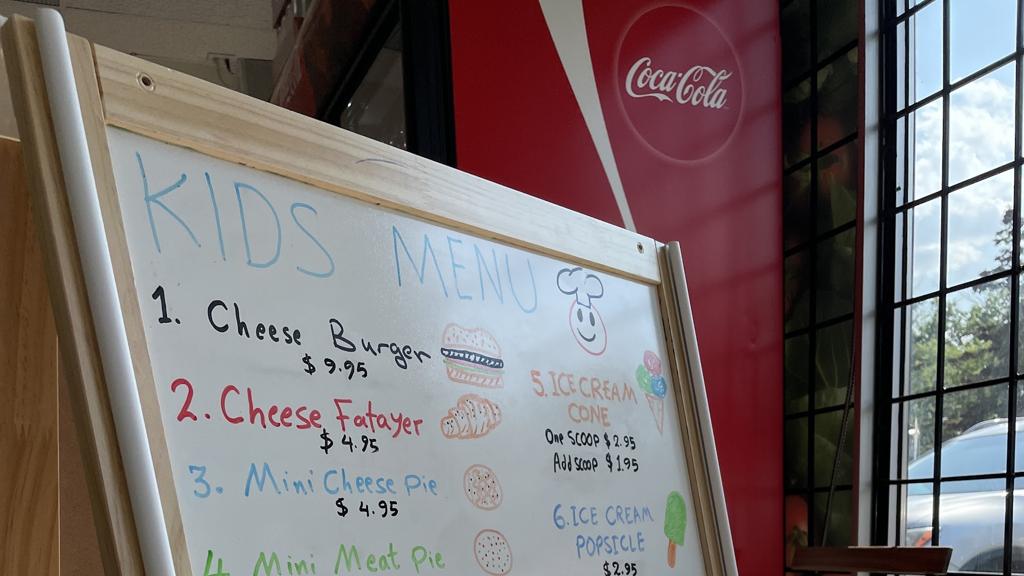 Coca-Cola
KIDS MENU
1. Cheese Burger
$ 9.95
2. Cheese Fatayer
$ 4.95
3. Mini Cheese Pie
$ 4.95
4. Mini Meat Pie
5. ICE CREAM
CONE
One SCOOP $ 2.95
Add SCOOP $ 1.95
6. ICE CREAM
POPSICLE
$ 2.95